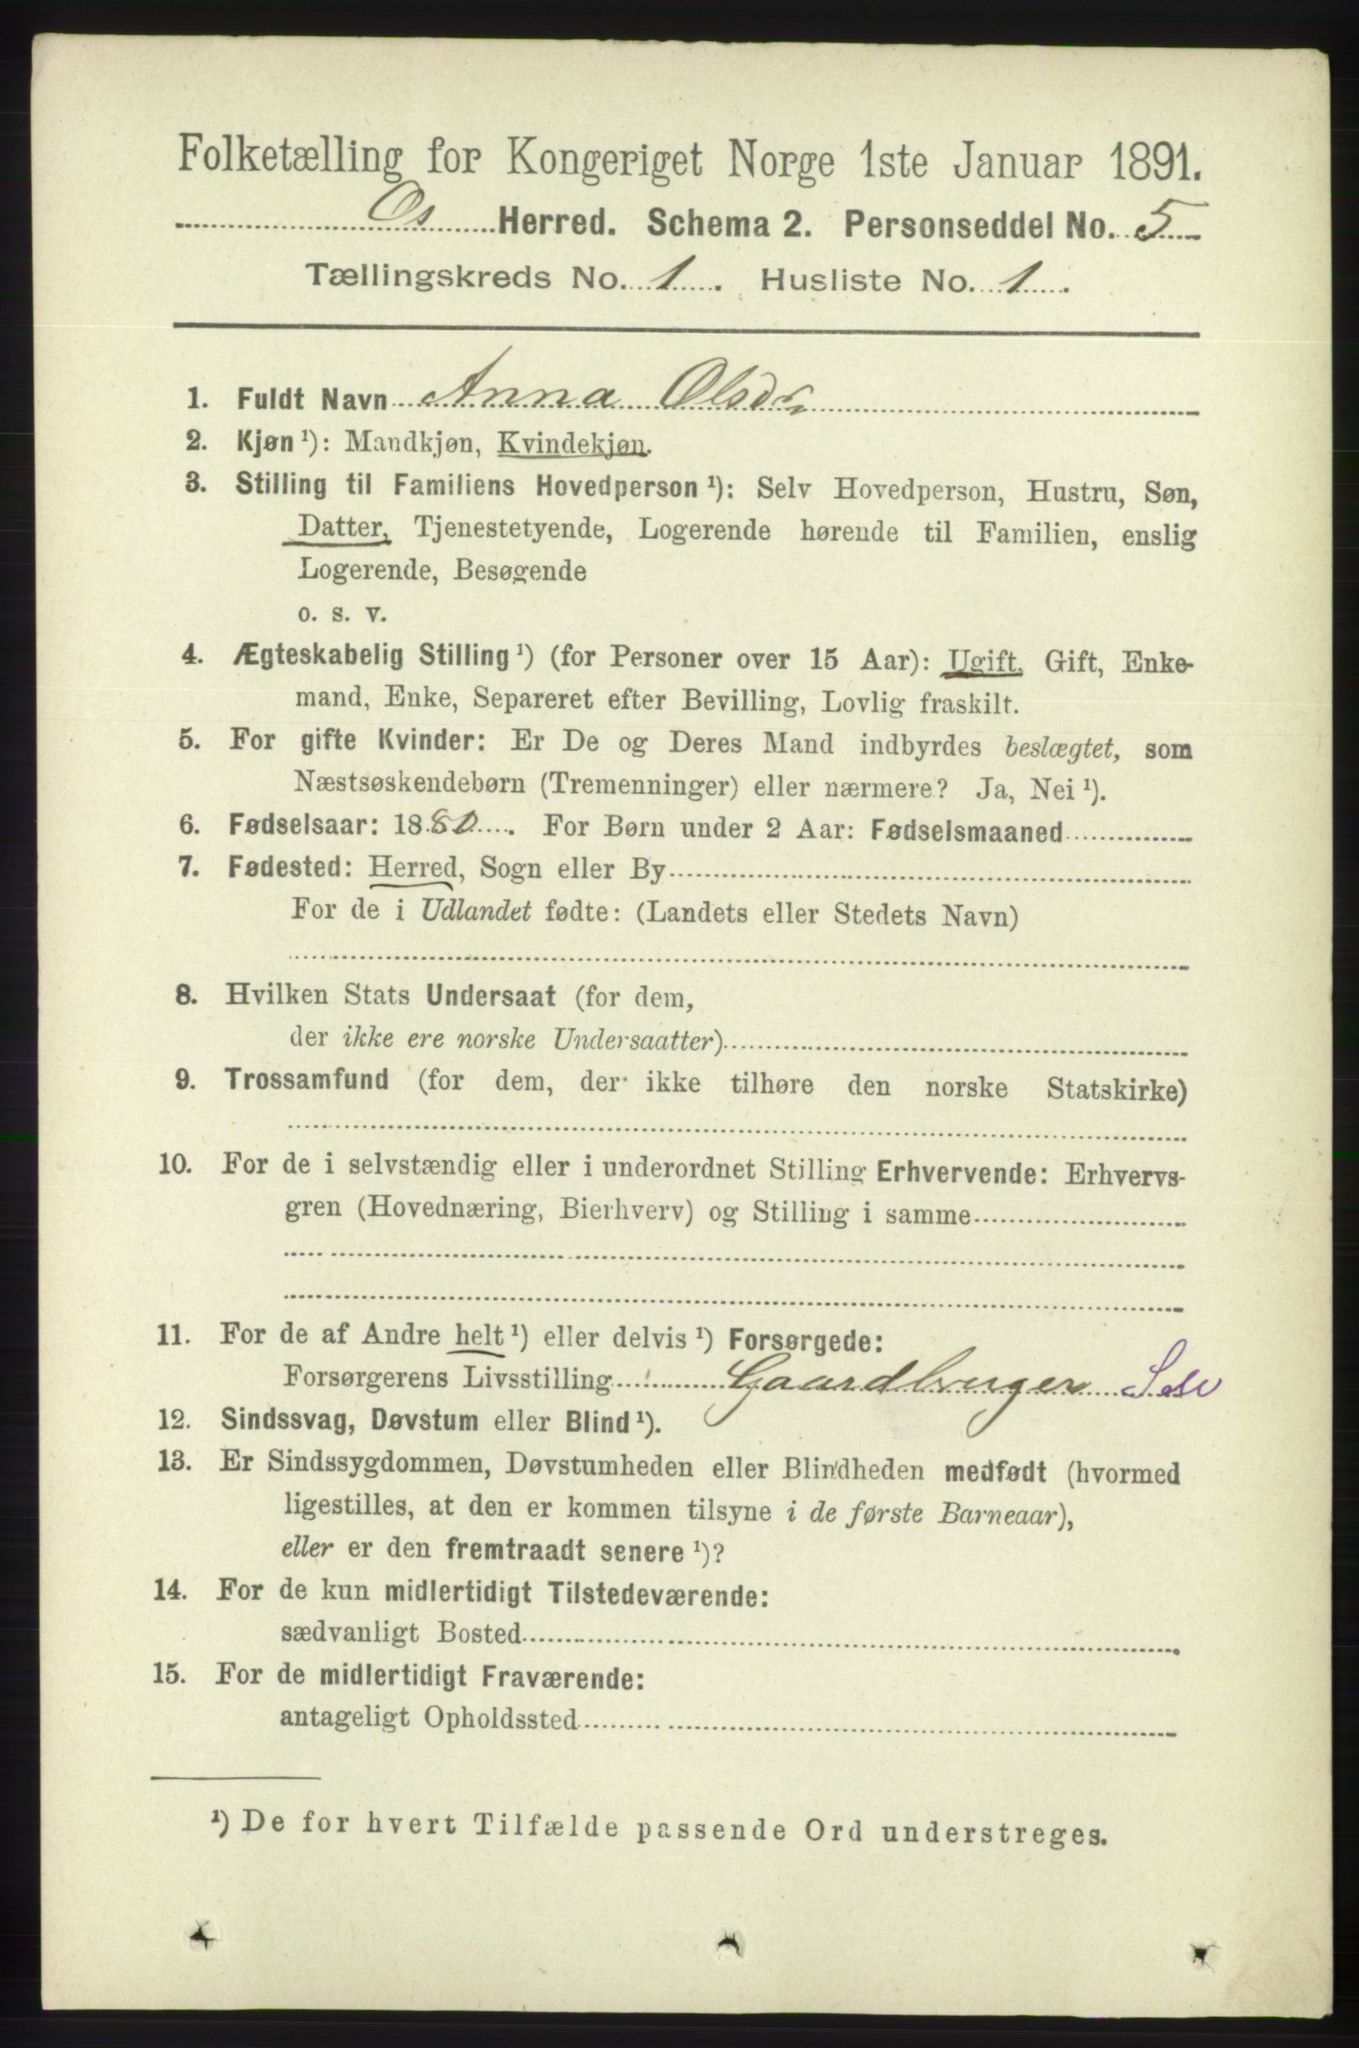 Folketælling for Kongeriget Norge 1ste Januar 1891.
Os Herred. Schema 2. Personseddel No. 5
Tællingskreds No. 1. Husliste No. 1.
1. Fuldt Navn Anna Olsdr.
2. Kjøn¹): Mandkjøn, Kvindekjøn.
3. Stilling til Familiens Hovedperson¹): Selv Hovedperson, Hustru, Søn,
Datter, Tjenestetyende, Logerende hørende til Familien, enslig
Logerende, Besøgende
o. s. v.
4. Ægteskabelig Stilling¹) (for Personer over 15 Aar): Ugift, Gift, Enke-
mand, Enke, Separeret efter Bevilling, Lovlig fraskilt.
5. For gifte Kvinder: Er De og Deres Mand indbyrdes beslægtet, som
Næstsøskendebørn (Tremenninger) eller nærmere? Ja, Nei¹).
6. Fødselsaar: 1880. For Børn under 2 Aar: Fødselsmaaned
7. Fødested: Herred, Sogn eller By
For de i Udlandet fødte: (Landets eller Stedets Navn)
8. Hvilken Stats Undersaat (for dem,
der ikke ere norske Undersaatter)
9. Trossamfund (for dem, der ikke tilhøre den norske Statskirke)
10. For de i selvstændig eller i underordnet Stilling Erhvervende: Erhvervs-
gren (Hovednæring, Bierhverv) og Stilling i samme
11. For de af Andre helt¹) eller delvis¹) Forsørgede:
Forsørgerens Livsstilling Gaardbruger
12. Sindssvag, Døvstum eller Blind¹).
13. Er Sindssygdommen, Døvstumheden eller Blindheden medfødt (hvormed
ligestilles, at den er kommen tilsyne i de første Barneaar),
eller er den fremtraadt senere¹)?
14. For de kun midlertidigt Tilstedeværende:
sædvanligt Bosted
15. For de midlertidigt Fraværende:
antageligt Opholdssted
¹) De for hvert Tilfælde passende Ord understreges.